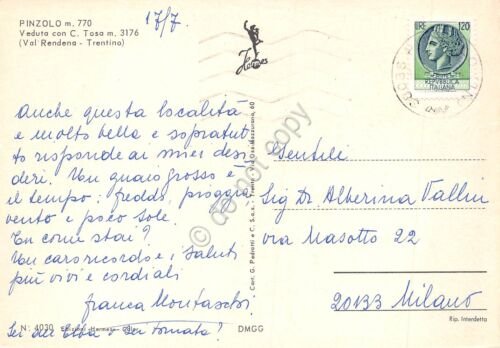 PINZOLO m. 770
Veduta con C. Tosa m. 3176
(Val Rendena - Trentino)
17/7.
Hermes
LIRE 120
REPVBBLICA
ITALIANA
Anche questa località
è molto bella e sopratut
to risponde ai miei desi
deri. Un guaio grosso è
il tempo: freddo, pioggia
vento e poco sole.
Tu come stai?
Un caro ricordo e i saluti
più vivi e cordiali
Franca
Sei all'Elba o sei tornata?
Gentile
Sig Dr. Alberina Vallin
via Masotto 22
20133 Milano
Cart. G. Pedrotti e C. S.a.s. - Trento - Via 60
N. 4030 Edizioni «Hermes»
DMGG
Rip. Interdetta
do not copy